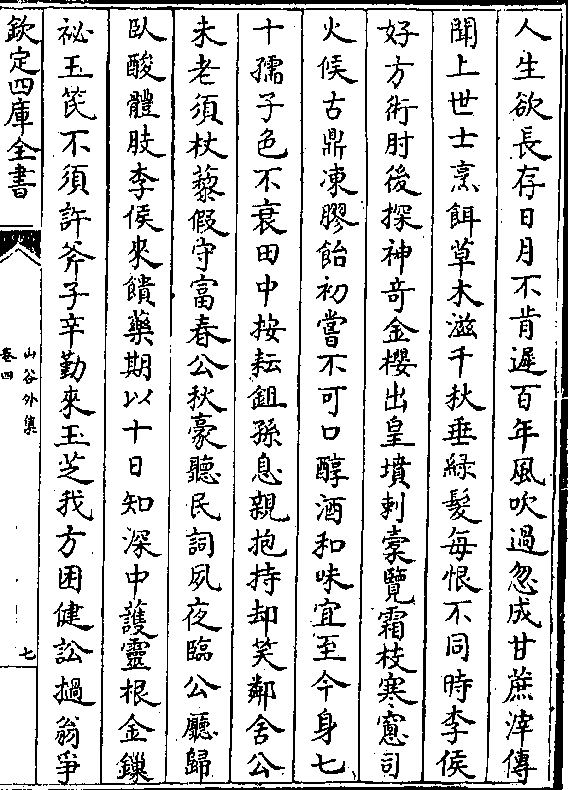 人生欲長存日月不肯遲百年風吹過忽成甘蔗滓傳
聞上世士烹餌草木滋千秋垂緑髮每恨不同時李侯
好方術肘後探神竒金櫻出皇墳刺橐覽霜枝寒窻司
火候古鼎凍膠飴初嘗不可口醇酒和味宜至今身七
十孺子色不衰田中按耘鉏孫息親抱持却笑鄰舍公
未老須杖藜假守富春公秋豪聽民詞夙夜臨公廳歸
臥酸體肢李侯來饋藥期以十日知深中䕶靈根金鏁
祕玉笢不須許斧子辛勤來玉芝我方困健訟撾翁爭
欽定四庫全書
山谷外集
卷四
七